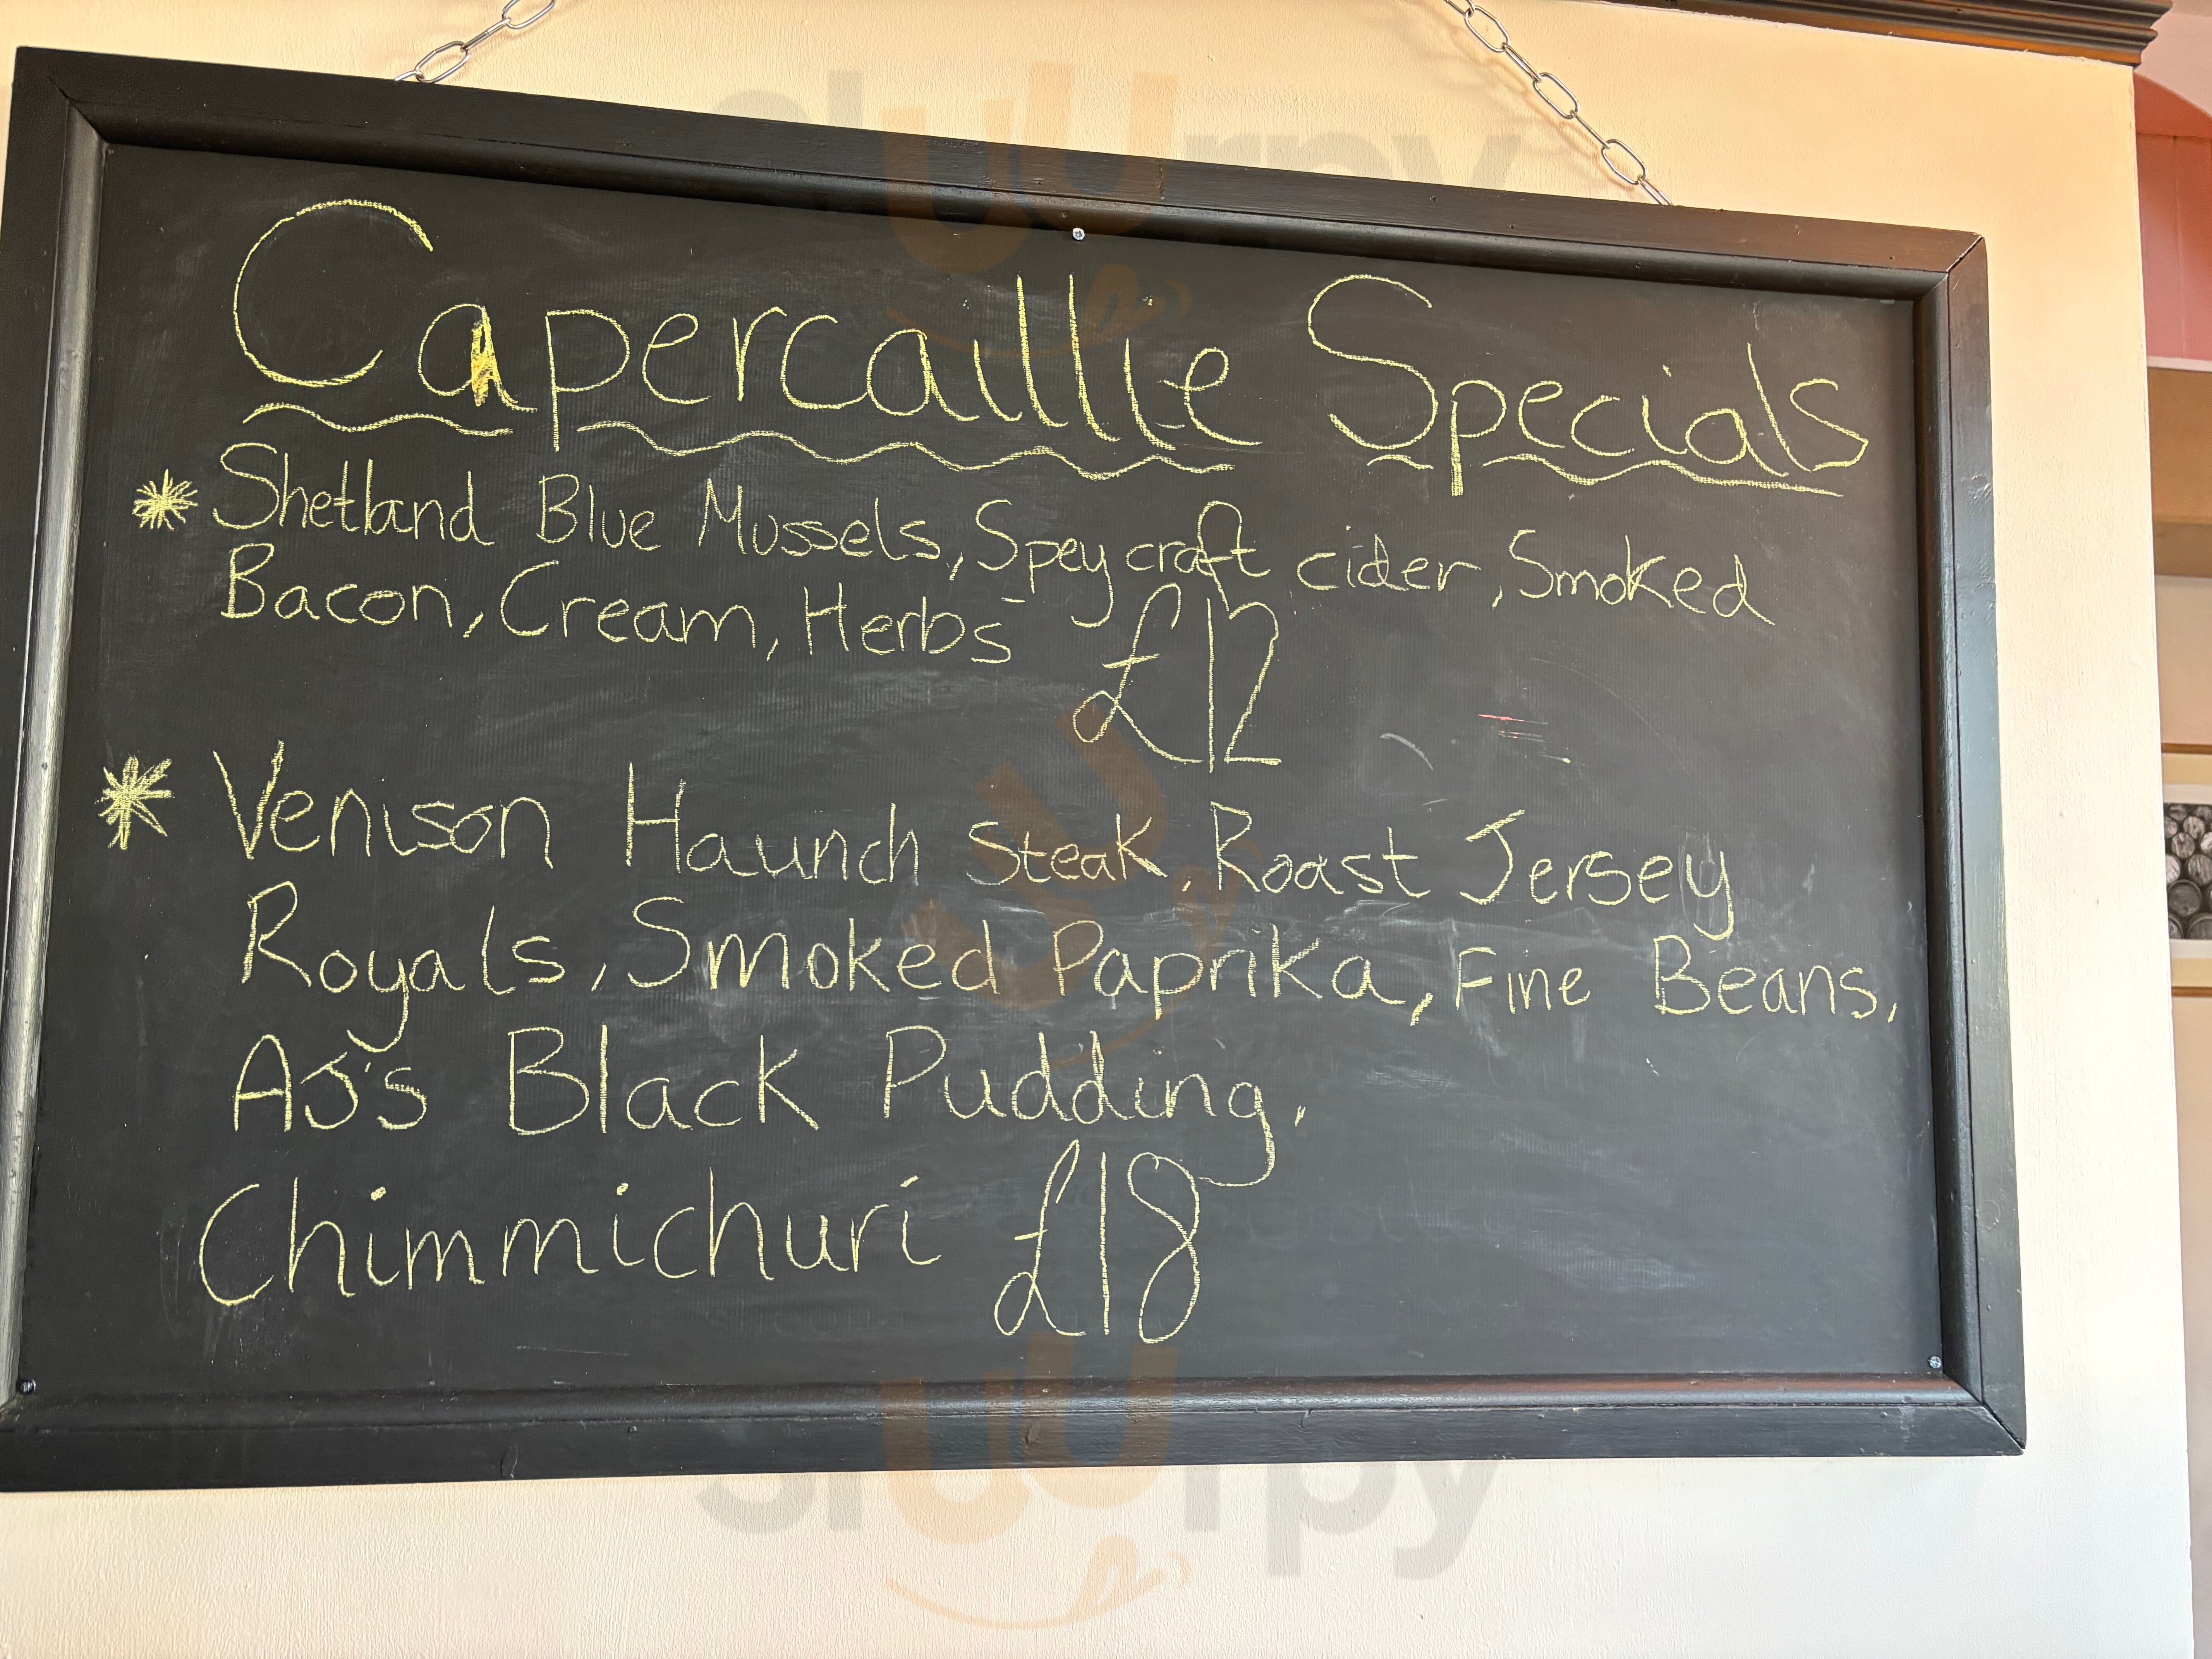 Capercaillie Specials
* Shetland Blue Mussels, Speycraft cider, Smoked
Bacon, Cream, Herbs
£12
* Venison Haunch Steak, Roast Jersey
Royals, Smoked Paprika, Fine Beans,
AJ's Black Pudding,
Chimmichuri £18
sluurpy
sluurpy